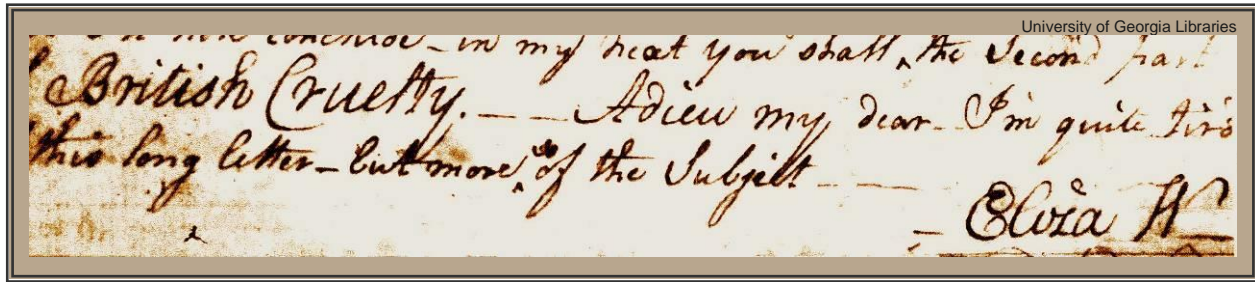 University of Georgia Libraries
conclude - in my next you shall ^ the Second part
British Cruelty. — — Adieu my dear - I'm quite tir'd
this long letter - but more ^ so of the Subject — —
- Eliza W